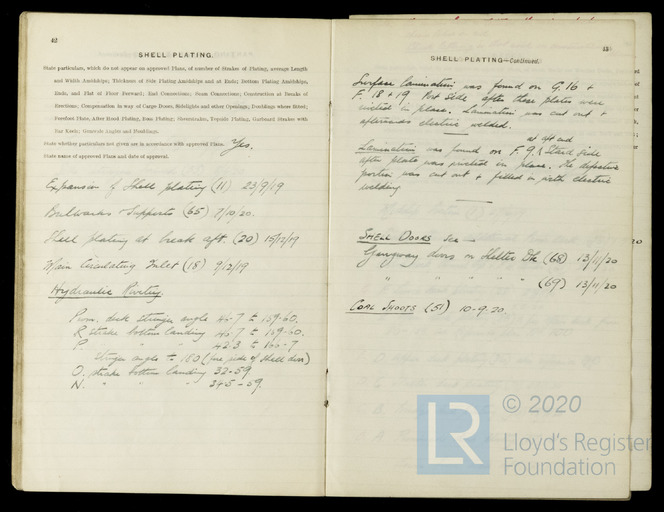 42
SHELL PLATING.
State particulars, which do not appear on approved Plans, of number of Strakes of Plating, average Length
and Width Amidships; Thickness of Side Plating Amidships and at Ends; Bottom Plating Amidships,
Ends, and Flat of Floor Forward; End Connections; Seam Connections; Construction at Breaks of
Erections; Compensation in way of Cargo Doors, Sidelights and other Openings; Doublings where fitted;
Forefoot Plate, After Hood Plating, Boss Plating; Sheerstrake, Topside Plating, Garboard Strakes with
Bar Keels; Generals Angles and Mouldings.
State whether particulars not given are in accordance with approved Plans. Yes.
State name of approved Plans and date of approval.
Expansion of Shell plating (11) 23/9/19
Bulwarks & Supports (65) 7/10/20.
Shell plating at break aft. (20) 15/12/19
Main Circulating Inlet (18) 9/12/19
Hydraulic Riveting
Prom. deck stringer angle 46.7 to 159-60.
R strake bottom landing 46.7 to 159-60.
P. " " " 42.3 to 160-7
Stringer angle to 180 (fore side of shell door)
O. strake bottom landing 32-59.
N. " " " 34.5-59.
SHELL PLATING—Continued.
Surface Lamination was found on G.16 &
F. 18 & 19 Port side after these plates were
riveted in place. Lamination was cut out &
afterwards electric welded.
at aft end
Lamination was found on F. 9 Starbd side
after plate was riveted in place. The defective
portion was cut out & filled in with electric
welding
SHELL DOORS see —
Gangway doors in Shelter Dk (68) 13/11/20
" " " " " (69) 13/11/20
COAL SHOOTS (51) 10-9-20.
LR
© 2020
Lloyd's Register
Foundation